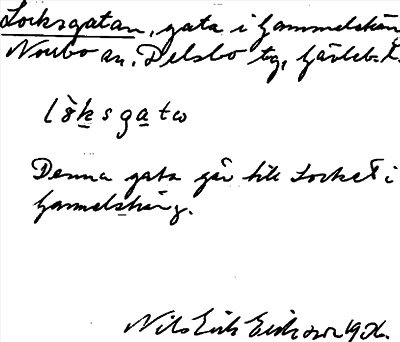 Locksgatan, gata i Gammelskäng
Norrbo sn, Delsbo tg, Gävleb. l.
Denna gata går till Locket i
Gammelskäng.
Nils Erik Eriksson 1936.